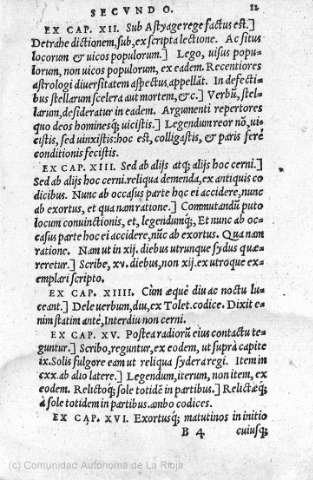 SECVNDO. 12
EX CAP. XII. Sub Astyage rege factus est.]
Detrahe dictionem, sub, ex scripta lectione. Ac situs
locorum & uicos populorum.] Lego, uisus popu-
lorum, non uicos populorum, ex eadem. Recentiores
astrologi diuersitatem aspectus, appellāt. In defecti-
bus stellarum scelera aut mortem, &c.] Verbū, stel-
larum, desideratur in eadem. Argumenti repertores
quo deos hominesq; uicistis.] Legendum reor nō, ui-
cistis, sed uinxistis: hoc est, colligastis, & paris ferè
conditionis fecistis.
EX CAP. XIII. Sed ab alijs atq; alijs hoc cerni.]
Sed ab alijs hoc cerni. reliqua demenda, ex antiquis co
dicibus. Nunc ab occasus parte hoc ei accidere, nunc
ab exortus, et qua nam ratione.] Commutandū puto
locum conuinctionis, et, legendumq;, Et nunc ab oc-
casus parte hoc ei accidere, nūc ab exortus. Qua nam
ratione. Nam ut in xij. diebus utrunque sydus quæ-
reretur.] Scribe, xv. diebus, non xij. ex utroque ex-
emplari scripto.
EX CAP. XIIII. Cùm æquè diu ac noctu lu-
ceant.] Dele uerbum, diu, ex Tolet. codice. Dixit e-
nim statim antè, Interdiu non cerni.
EX CAP. XV. Postea radiorū eius contactu te
guntur.] Scribo, reguntur, ex eodem, ut suprà capite
ix. Solis fulgore eam ut reliqua sydera regi. Item in
cxx. ab alio latere.] Legendum, iterum, non item, ex
eodem. Relictoq; sole totidē in partibus.] Relictæq;
à sole totidem in partibus. ambo codices.
EX CAP. XVI. Exortusq; matutinos in initio
B 4 cuiusq;
(c) Comunidad Autónoma de La Rioja